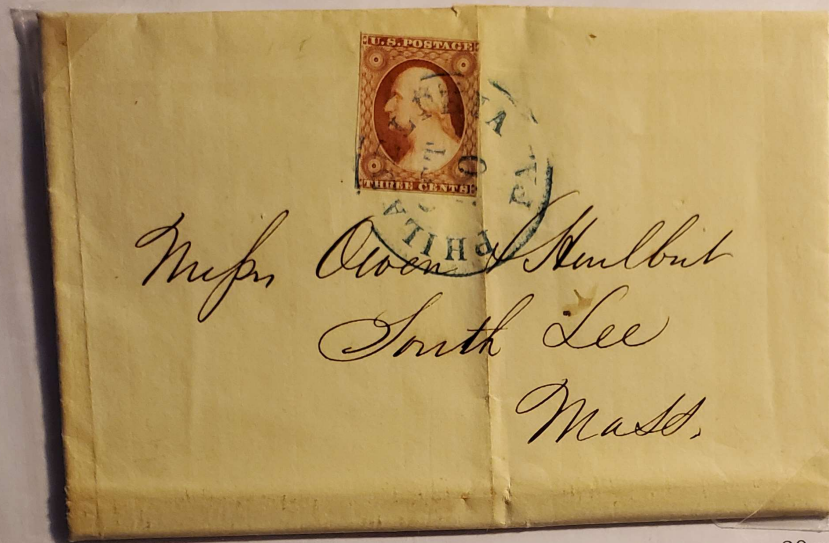 U.S. POSTAGE
THREE CENTS
PHILADELPHIA Pa.
Messrs Owen & Hurlbut
South Lee
Mass.